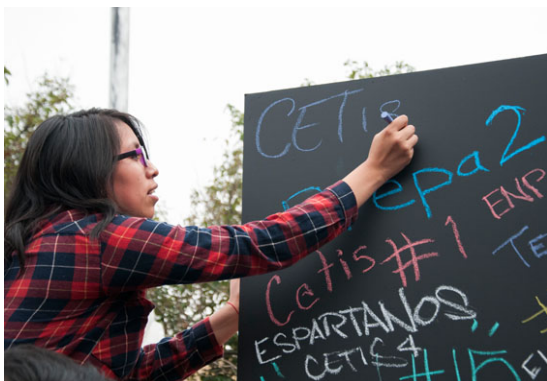 CETis
Prepa 2
ENP
Cetis #1
TE
ESPARTANOS
CETIS 4
#15